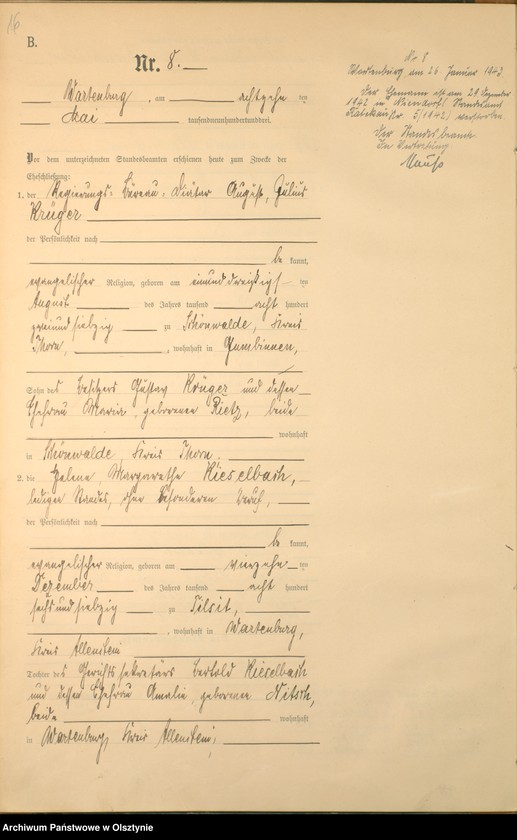 16.
B.
Nr. 8.
Wartenburg, am achtzehn ten
Mai tausendneunhundertunddrei.
Vor dem unterzeichneten Standesbeamten erschienen heute zum Zwecke der
Eheschließung:
1. der Regierungs-Büreau-Diätar August, Julius
Krüger
der Persönlichkeit nach
be kannt,
evangelischer Religion, geboren am einunddreißigs ten
August des Jahres tausend acht hundert
zweiundsiebzig zu Schönwalde, Kreis
Thorn, , wohnhaft in Gumbinnen,
Sohn des Besitzers Gustav Krüger und dessen
Ehefrau Maria, geborenen Rietz, beide
wohnhaft
in Schönwalde, Kreis Thorn.
2. die Helene Margarethe Kieselbach,
ledigen Standes, ohne besonderen Beruf,
der Persönlichkeit nach
be kannt,
evangelischer Religion, geboren am vierzehn ten
Dezember des Jahres tausend acht hundert
sechsundsiebzig zu Tilsit,
, wohnhaft in Wartenburg,
Kreis Allenstein
Tochter des Gerichtssekretärs Bertold Kieselbach
und dessen Ehefrau Amalie, geborenen Nitsch,
beide wohnhaft
in Wartenburg, Kreis Allenstein,
Nr 8
Wartenburg am 26 Januar 1943
Der Ehemann ist am 29 Dezember
1942 in Standesamt
Nr. 5/1942) verstorben
Der Standesbeamte
In Vertretung
Archiwum Państwowe w Olsztynie